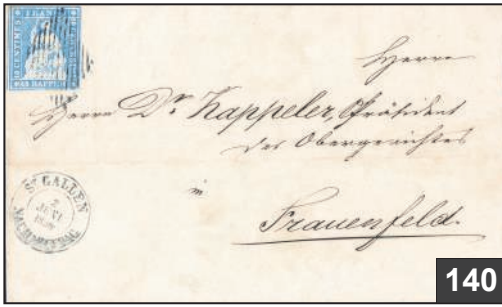 FRANCO
10 CENTIMES
10 RAPPEN
Herrn
Herrn Dr. Kappeler, Präsident
des Obergerichtes
in
Frauenfeld.
ST GALLEN
2
JUNI
NACHMITTAG
140